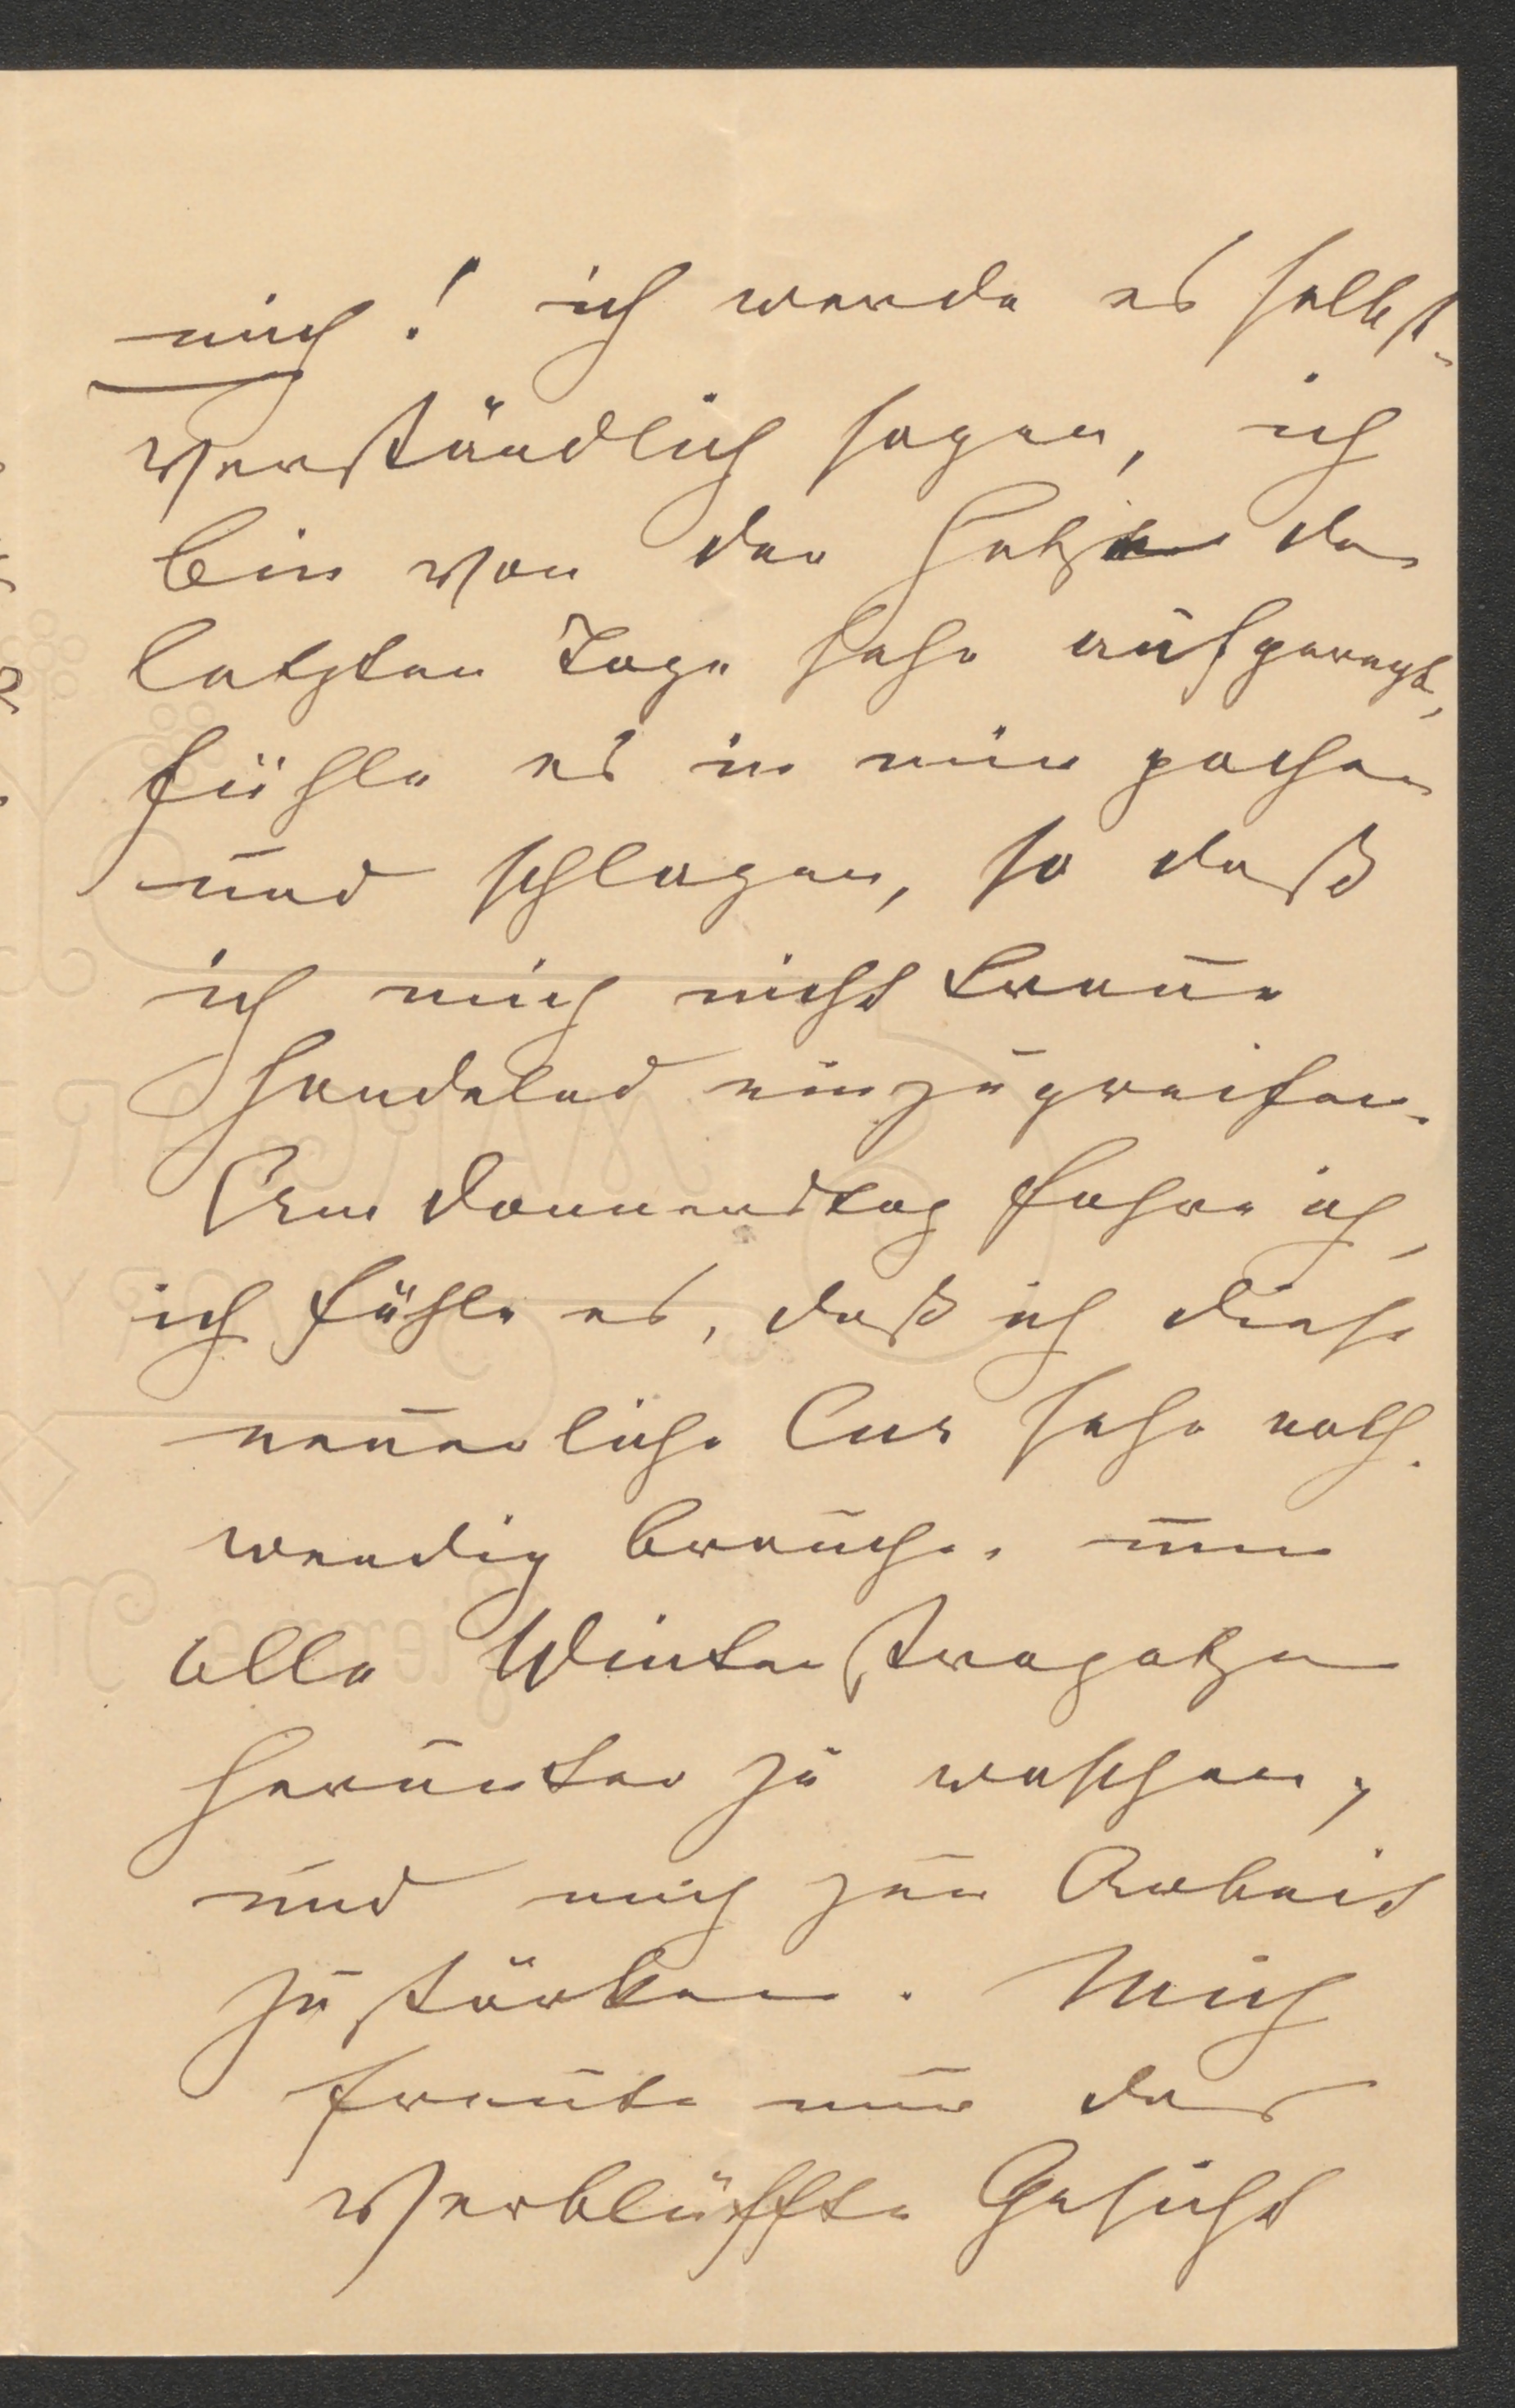 mich! ich werde es selbst-
verständlich sagen, ich
bin von der Hetze der
letzten Tage sehr aufgeregt,
fühle es in mir pochen
und schlagen, so daß
ich mich nicht traue
handelnd einzugreifen.
Am Donnerstag fahre ich,
ich fühle es, daß ich diese
neuerliche Cur sehr noth-
wendig brauche, um
alle Winterstrapatzen
herunter zu waschen,
und mich zur Arbeit
zu stärken. Mich
freute nur das
verblüffte Gesicht